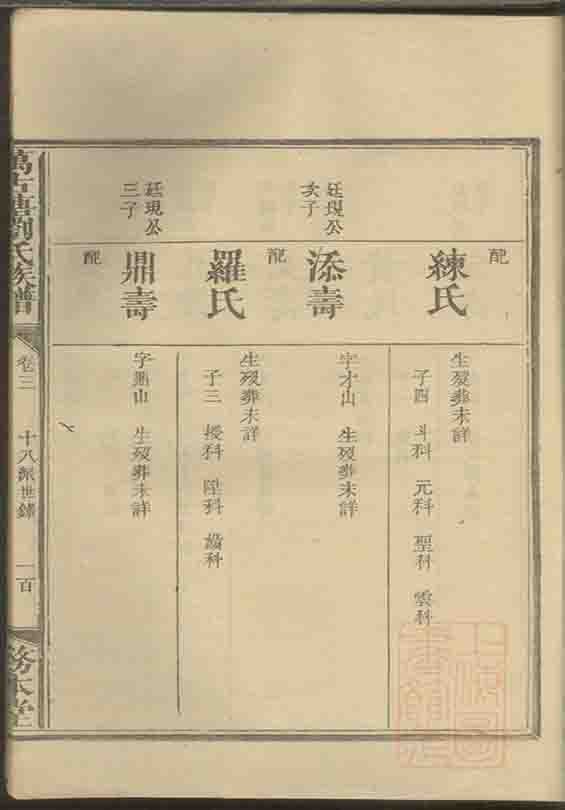 配
練氏
生歿葬未詳
子四 斗科 元科 聖科 雲科
廷現公
次子
添壽
字才山 生歿葬未詳
配
羅氏
生歿葬未詳
子三 授科 陞科
廷現公
三子
鼎壽
生歿葬未詳
配
萬古塘劉氏族譜
卷三
十八派世錄
一百
務本堂
上海圖書館藏